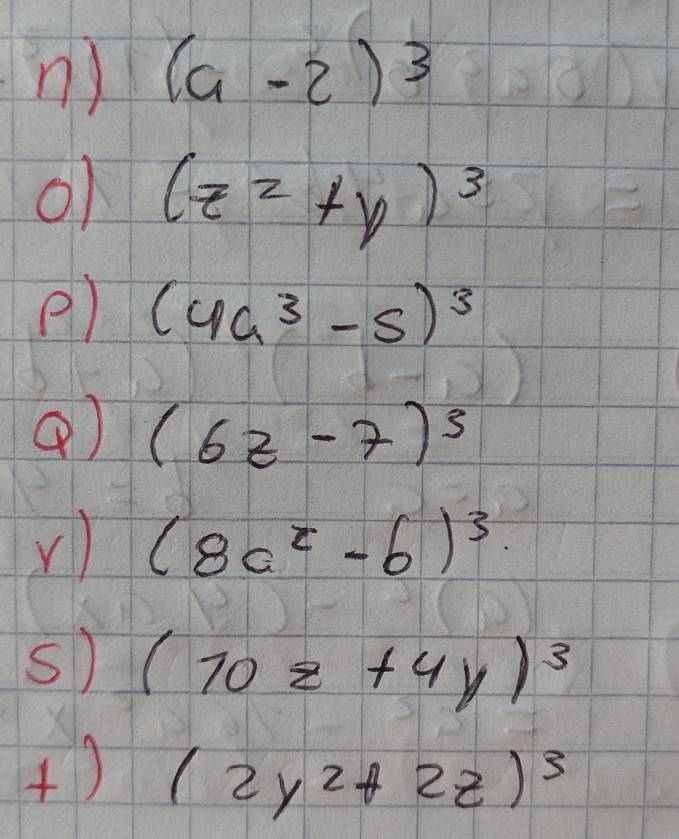 n) (a - 2)³
o) (z² + y)³
p) (4a³ - 5)³
Q) (6z - 7)³
r) (8a² - b)³.
s) (10z + 4y)³
t) (2y² + 2z)³